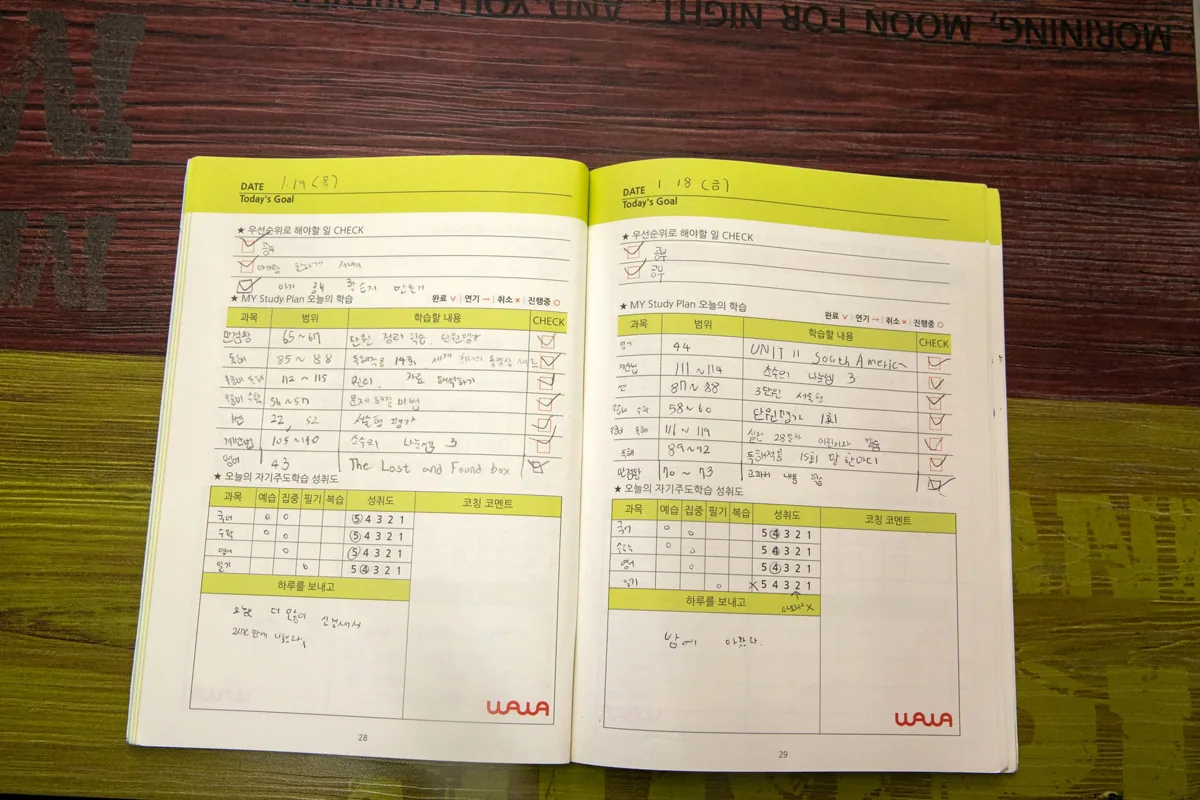 MORINING, MOON FOR NIGHT, AND YOU FOREVER
DATE 1.19 (목)
Today's Goal
★ 우선순위로 해야할 일 CHECK
공부
★ MY Study Plan 오늘의 학습
완료 ∨ | 연기 → | 취소 × | 진행중 ○
과목 범위 학습할 내용 CHECK
만점왕 65~67 단원 정리 학습, 단원평가
독해 85~88 독해적용 14회 세계
112~115 원리. 자료 해석하기
56~57 문제 해결의 법
22, 52 서술형 평가
소수의 나눗셈 3
영어 43 The Lost and Found box
★ 오늘의 자기주도학습 성취도
과목 예습 집중 필기 복습 성취도 코칭 코멘트
국어 ○ ○ ⑤ 4 3 2 1
수학 ○ ○ ⑤ 4 3 2 1
영어 ○ ⑤ 4 3 2 1
필기 ○ 5 ④ 3 2 1
하루를 보내고
오늘 더 많이
WAWA
28
DATE 1 18 (금)
Today's Goal
★ 우선순위로 해야할 일 CHECK
공부
공부
★ MY Study Plan 오늘의 학습
완료 ∨ | 연기 → | 취소 × | 진행중 ○
과목 범위 학습할 내용 CHECK
영어 44 UNIT 11 South America
111~114 소수의 나눗셈 3
87~88 3단원 서술형
58~60 단원평가 1회
116~119 실전 28일차 어린이와
독해 89~92 독해적용 15회 말 한마디
만점왕 70~73 교과서 내용 학습
★ 오늘의 자기주도학습 성취도
과목 예습 집중 필기 복습 성취도 코칭 코멘트
국어 ○ ○ 5 ④ 3 2 1
수학 ○ ○ 5 ④ 3 2 1
영어 ○ 5 ④ 3 2 1
필기 ○ × 5 4 3 2 1
하루를 보내고
밤에
WAWA
29